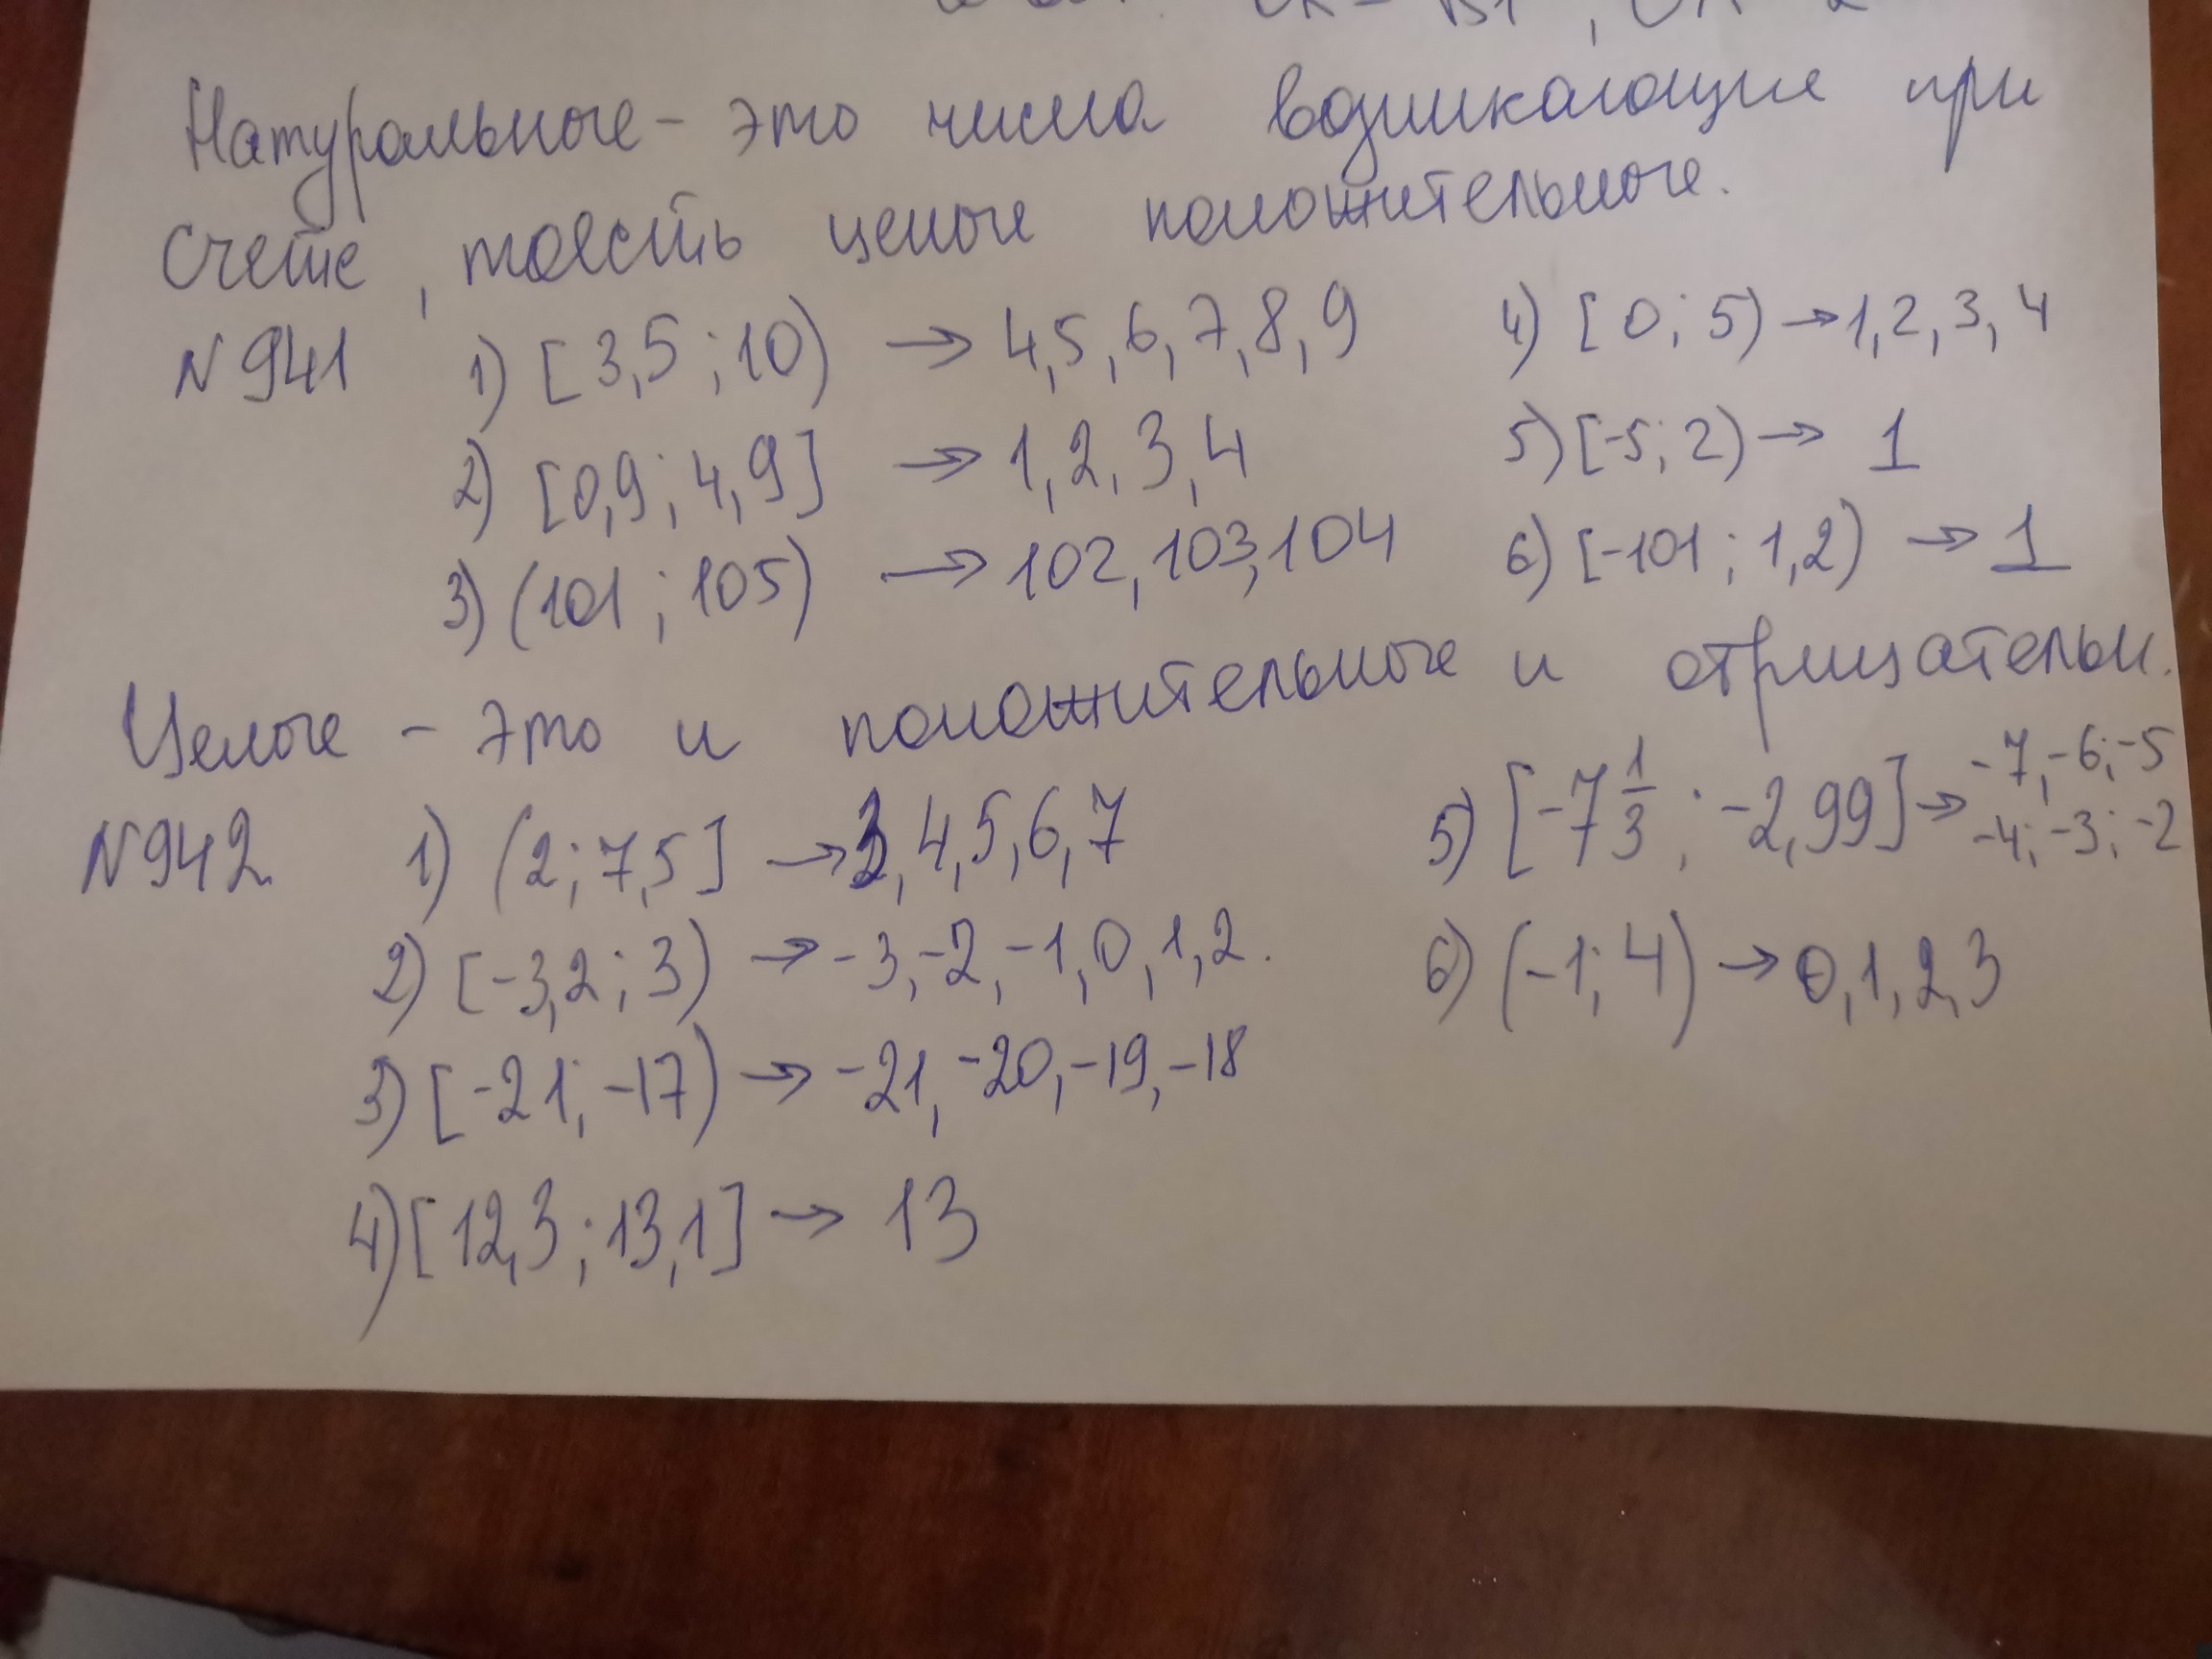 Натуральные - это числа возникающие при
счете, тоесть целые положительные.
N941 1) [3,5 ; 10) → 4,5,6,7,8,9 4) [0; 5) → 1,2,3,4
2) [0,9 ; 4,9] → 1,2,3,4 5) [-5; 2) → 1
3) (101 ; 105) → 102,103,104 6) [-101 ; 1,2) → 1
Целые - это и положительные и отрицательн.
N942 1) (2; 7,5] → 3,4,5,6,7 5) [-7 1/3 ; -2,99] → -7,-6;-5
-4; -3; -2
2) [-3,2 ; 3) → -3,-2,-1,0,1,2. 6) (-1; 4) → 0,1,2,3
3) [-21; -17) → -21, -20,-19,-18
4) [12,3 ; 13,1] → 13